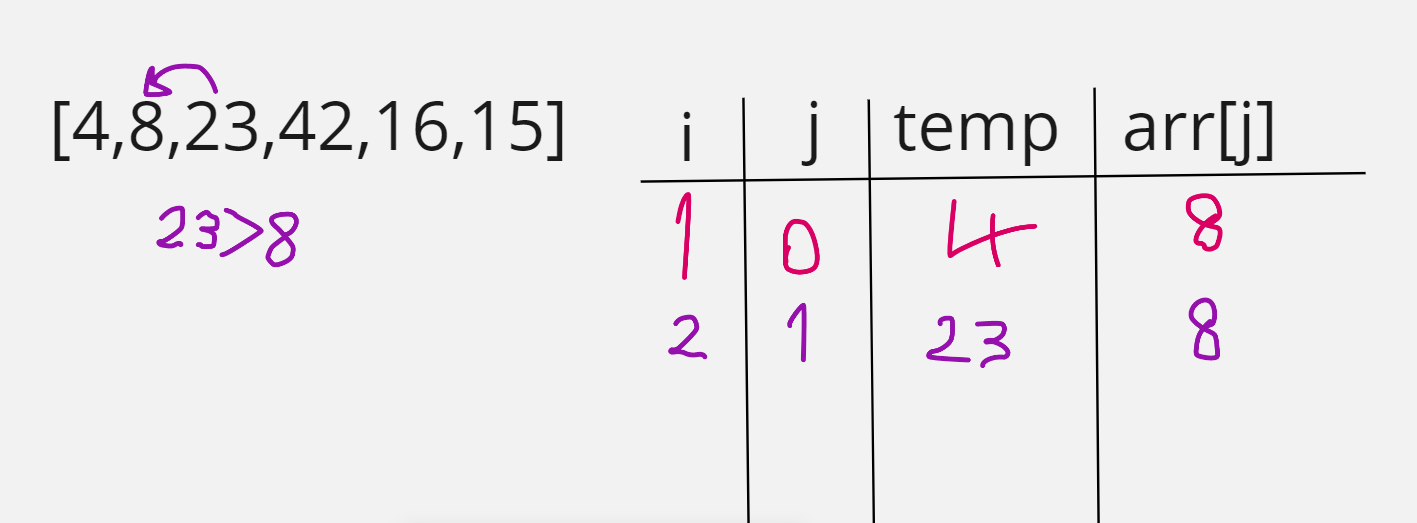 [4,8,23,42,16,15]
23>8
i j temp arr[j]
1 0 4 8
2 1 23 8